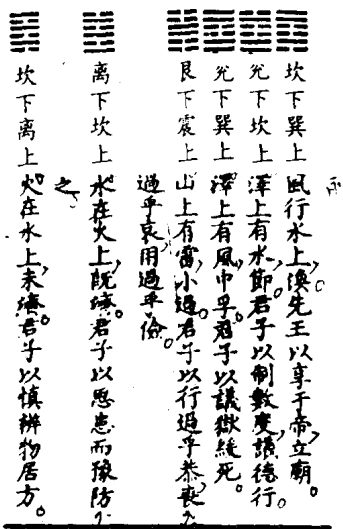 坎下巽上 風行水上，渙。先王以享于帝，立廟。
兌下坎上 澤上有水，節。君子以制數度，議德行。
兌下巽上 澤上有風，中孚。君子以議獄緩死。
艮下震上 山上有雷，小過。君子以行過乎恭，喪
過乎哀，用過乎儉。
离下坎上 水在火上，既濟。君子以思患而豫防
之。
坎下离上 火在水上，未濟。君子以慎辨物居方。